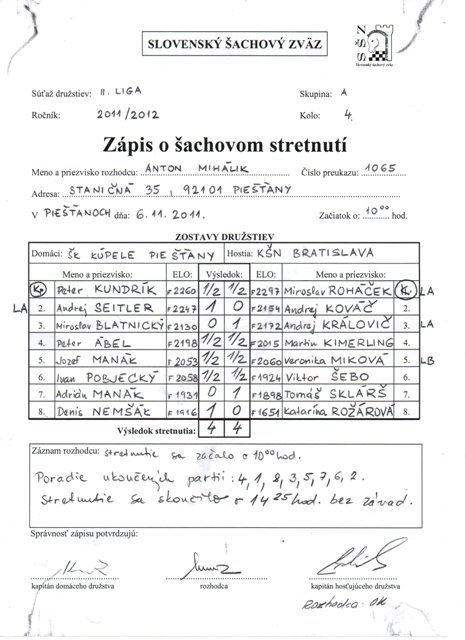 SLOVENSKÝ ŠACHOVÝ ZVÄZ
SŠZ
Slovenský šachový zväz
Súťaž družstiev: II. LIGA Skupina: A
Ročník: 2011/2012 Kolo: 4.
Zápis o šachovom stretnutí
Meno a priezvisko rozhodcu: ANTON MIHÁLIK Číslo preukazu: 1065
Adresa: STANIČNÁ 35, 92101 PIEŠŤANY
V PIEŠŤANOCH dňa: 6.11.2011. Začiatok o: 10⁰⁰ hod.
ZOSTAVY DRUŽSTIEV
Domáci: ŠK KÚPELE PIEŠŤANY Hostia: KŠN BRATISLAVA
Meno a priezvisko: ELO: Výsledok: ELO: Meno a priezvisko:
K. Peter KUNDRÍK F2260 1/2 1/2 F2297 Miroslav ROHÁČEK K. LA
LA 2. Andrej SEITLER F2247 1 0 F2154 Andrej KOVÁČ 2.
3. Miroslav BLATNICKÝ F2130 0 1 F2172 Andrej KRÁLOVIČ 3. LA
4. Peter ÁBEL F2198 1/2 1/2 F2015 Martin KIMERLING 4.
5. Jozef MANÁK F2053 1/2 1/2 F2060 Veronika MIKOVÁ 5. LB
6. Ivan POBJECKÝ F2058 1/2 1/2 F1924 Viktor ŠEBO 6.
7. Adrián MANÁK F1931 0 1 F1898 Tomáš SKLÁRŠ 7.
8. Denis NEMŠÁK F1916 1 0 F1651 Katarína ROŽÁROVÁ 8.
Výsledok stretnutia: 4 4
Záznam rozhodcu: stretnutie sa začalo o 10⁰⁰ hod.
Poradie ukončených partií: 4, 1, 8, 3, 5, 7, 6, 2.
Stretnutie sa skončilo o 14²⁵ hod. bez závad.
Správnosť zápisu potvrdzujú:
kapitán domáceho družstva rozhodca kapitán hosťujúceho družstva
Rozhodca - OK